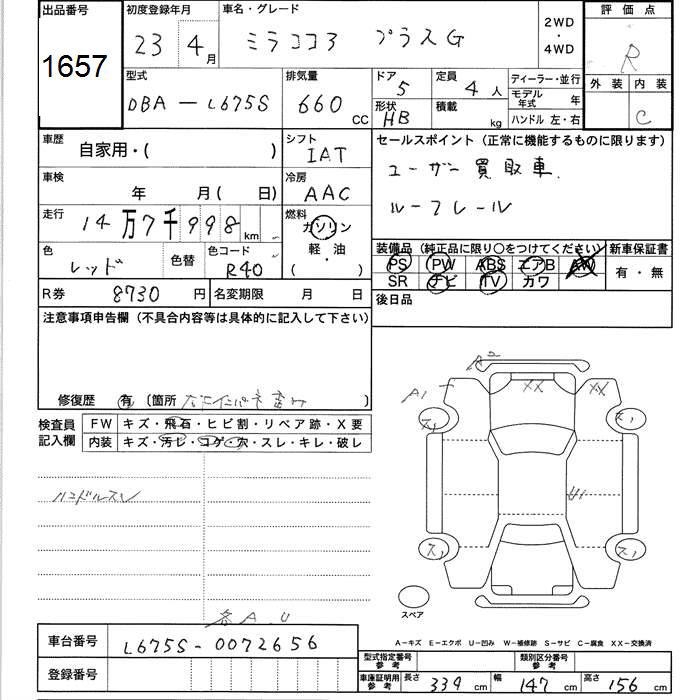 出品番号 1657
初度登録年月 23 4月
車名・グレード ミラココア プラスG
2WD・4WD
評価点 R
外装 内装 C
型式 DBA-L675S
排気量 660 CC
ドア 5
形状 HB
定員 4 人
積載 kg
ディーラー・並行
モデル年式 年
ハンドル 左・右
車歴 自家用・( )
シフト IAT
車検 年 月( 日)
冷房 AAC
走行 14万7千998 km
燃料 ガソリン 軽・油 ( )
色 レッド 色替 色コード R40
R券 8730 円 名変期限 月 日
セールスポイント(正常に機能するものに限ります)
ユーザー買取車.
ルーフレール
装備品(純正品に限り○をつけてください) 新車保証書
PS PW ABS エアB AW 有・無
SR ナビ TV カワ
後日品
注意事項申告欄(不具合内容等は具体的に記入して下さい)
修復歴 有 (箇所 )
検査員記入欄
FW キズ・飛石・ヒビ割・リペア跡・X要
内装 キズ・汚レ・コゲ・穴・スレ・キレ・破レ
ハンドルスレ
各A.U
A2
A1 XX XX
U1
スペア
A-キズ E-エクボ U-凹み W-補修跡 S-サビ C-腐食 XX-交換済
車台番号 L675S-0072656
登録番号
型式指定番号 参考 類別区分番号 参考
車庫証明用 参考 長さ 339 cm 幅 147 cm 高さ 156 cm